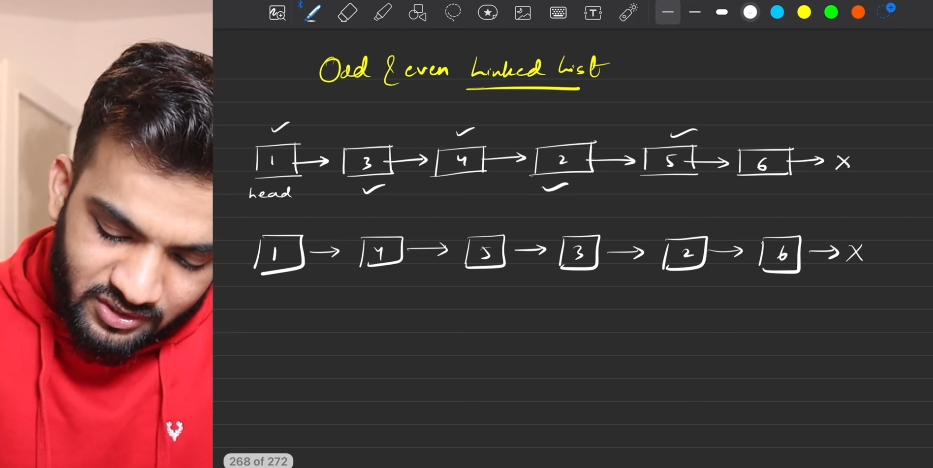 Odd & even Linked List
1 → 3 → 4 → 2 → 5 → 6 → X
head
1 → 4 → 5 → 3 → 2 → 6 → X
268 of 272